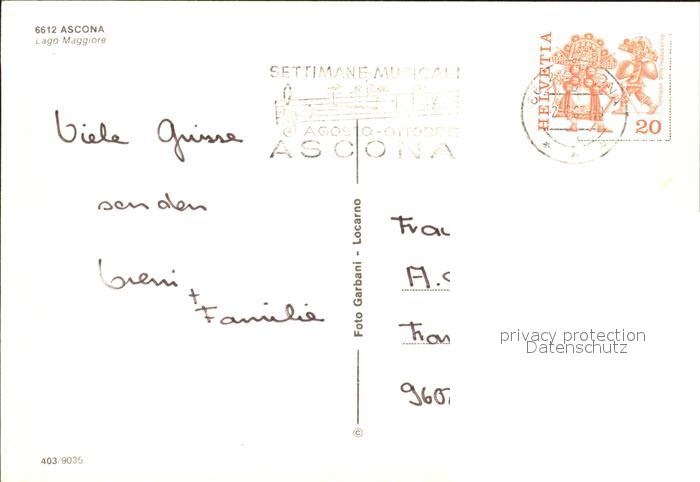 6612 ASCONA
Lago Maggiore
SETTIMANE MUSICALI
AGOSTO - OTTOBRE
ASCONA
HELVETIA
20
Viele Grüsse
senden
Vreni
+
Familie
Foto Garbani - Locarno
©
Frau
A.
9607
privacy protection
Datenschutz
403/9035